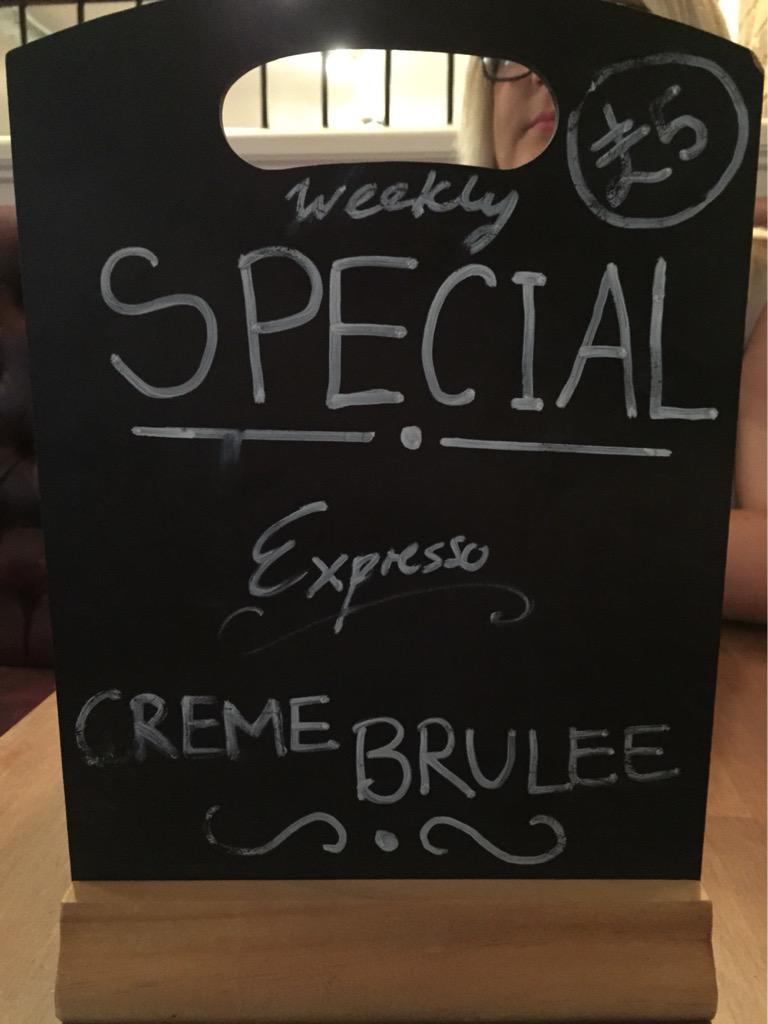 £5
Weekly
SPECIAL
Expresso
CREME BRULEE